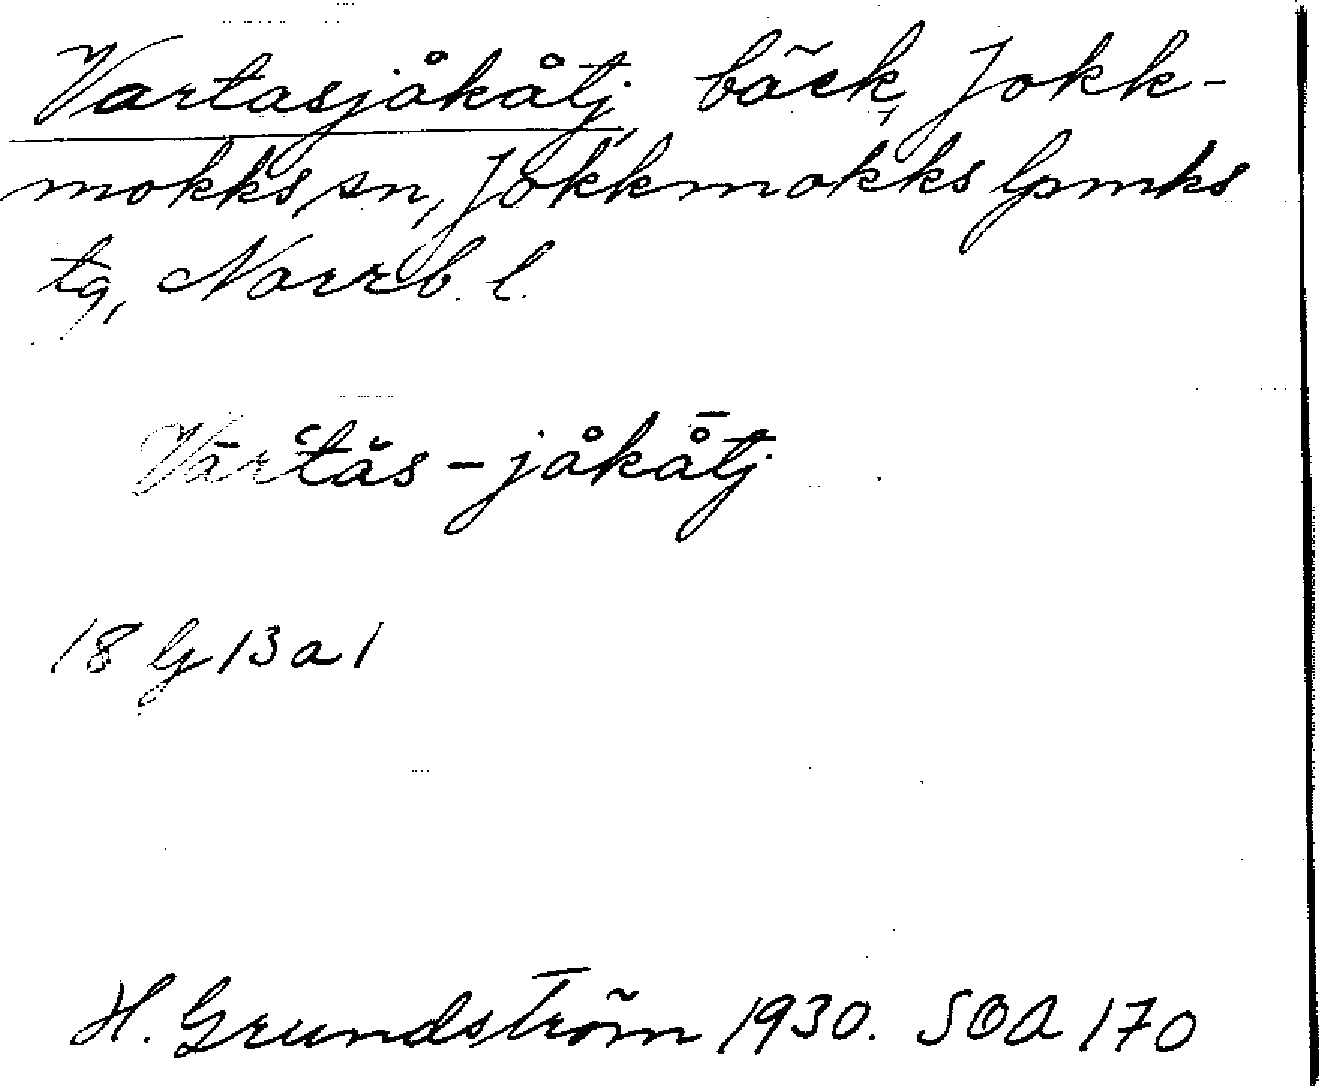 Vartasjåkåtj, bäck, Jokk-
mokks sn, Jokkmokks lpmks
tg, Norrb. l.
Vārʿtăs-jåkå̄tj
18 G 13 a 1
H. Grundström 1930. SOA 170